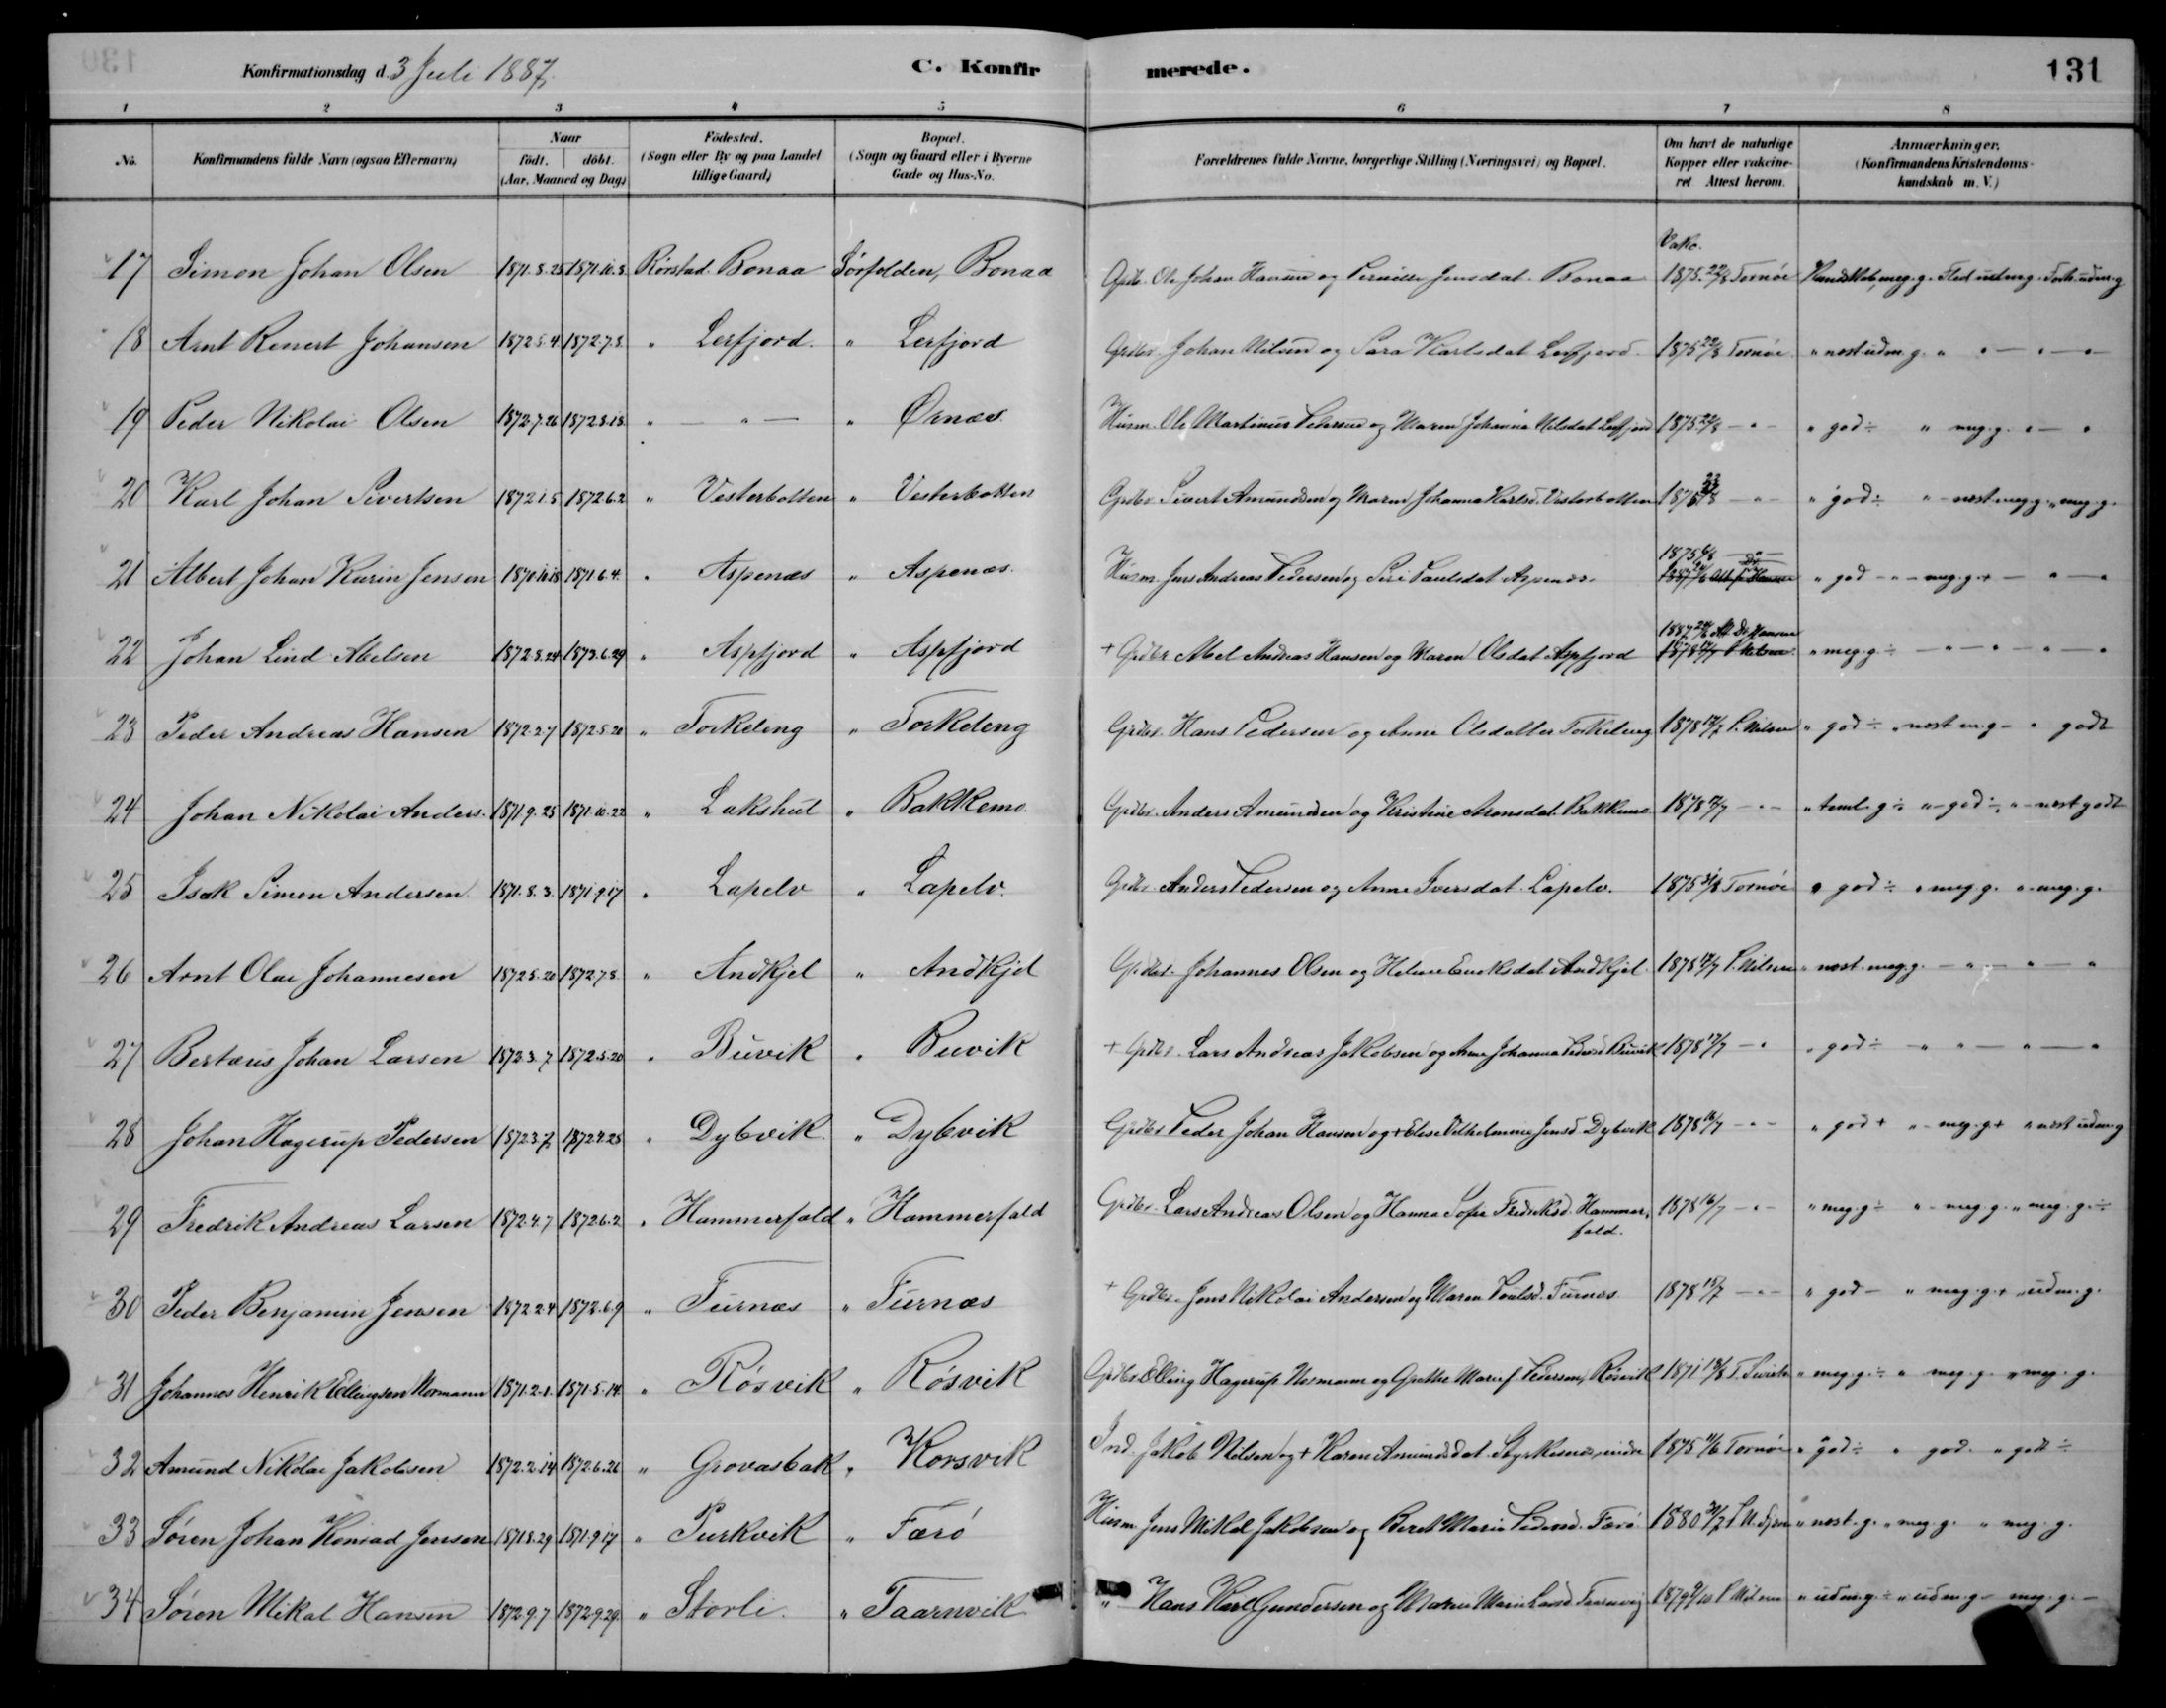 Konfirmationsdag d. 3 Juli 1887.
C. Konfirmerede.
131
1 2 3 4 5 6 7 8
No. Konfirmandens fulde Navn (ogsaa Efternavn) Naar födt. döbt. (Aar, Maaned og Dag) Födested. (Sogn eller By og paa Landet tillige Gaard) Bopæl. (Sogn og Gaard eller i Byerne Gade og Hus-No. Forældrenes fulde Navne, borgerlige Stilling (Næringsvei) og Bopæl. Om havt de naturlige Kopper eller vakcineret Attest herom. Anmærkninger. (Konfirmandens Kristendomskundskab m. V.)
Vakc.
17 Simon Johan Olsen 1871.8.25 1871.10.8 Rörstad. Bonaa Sörfolden, Bonaa Gdbr. Ole Johan Hansen og Pernille Jensdat. Bonaa 1875 22/8 Tornöe Kundskab, meg. g. Flid udm g. Forh. udm g.
18 Arnt Renert Johansen 1872.5.4 1872.7.8. " Lerfjord. " Lerfjord Grdbr. Johan Nilsen og Sara Karlsdat. Lerfjord 1875 22/8 Tornöe " næst udm. g. " " — " — "
19 Peder Nikolai Olsen 1872.7.26 1872.8.18. " — " — " Ørnæs. Husm. Ole Martinus Pedersen og Maren Johanna Nilsdat Lerfjord 1875 22/8 — " — " god ÷ " meg. g. " — "
20 Karl Johan Sivertsen 1872.1.5 1872.6.2 " Vesterbotten " Vesterbotten Grdbr. Sivert Amundsen og Maren Johanna Karlsd. Vesterbotten — " — " god ÷ " — næst meg g. " meg. g.
21 Albert Johan Karin Jensen 1870.10.18 1871.6.4. " Aspenæs " Aspenæs. Husm. Jens Andreas Pedersen og Siri Paulsdat Aspenæs. 1875 — " — " god — " — meg. g. + — " — "
22 Johan Lind Abelsen 1872.8.24 1873.6.29 " Aspfjord " Aspfjord + Grdbr. Abel Andreas Hansen og Maren Olsdat Aspfjord 1887 Att. Dr Hansen " meg. g ÷ — " — " — " — "
23 Peder Andreas Hansen 1872.2.7 1872.5.20 " Torkeleng " Torkeleng Grdbr. Hans Pedersen og Anne Olsdatter Torkeleng 1878 17/7 P. Nilsen " god ÷ " næst m. g — " godt
24 Johan Nikolai Anders. 1871.9.25 1871.10.22 " Lakshul " Bakkemo. Grdbr. Anders Amundsen og Kristine Aronsdat. Bakkemo 1878 17/7 — " — " teml. g ÷ " — god ÷, " — næst godt
25 Isak Simon Andersen. 1871.8.3. 1871.9.17 " Lapelv " Lapelv. Grdbr. Anders Pedersen og Anne Iversdat. Lapelv. 1875 21/8 Tornöe " god ÷ " meg. g. " — meg. g.
26 Arnt Olai Johannesen 1872.5.20 1872.7.8. " Andkjel " Andkjel Grdbr. Johannes Olsen og Helene Enoksdat Andkjel. 1878 17/7 P. Nilsen " næst. meg. g. — " — " — "
27 Bertæus Johan Larsen 1872.3.7 1872.5.20 " Buvik " Buvik + Grdbr. Lars Andreas Jakobsen og Anne Johanna Pedersd. Buvik 1878 17/7 — " " god ÷ — " " — " — "
28 Johan Hagerup Pedersen 1872.3.7. 1872.7.28 " Dybvik. " Dybvik Grdbr. Peder Johan Hansen og + Elise Vilhelmine Jensd. Dybvik 1878 16/7 — " — " god + " — meg. g + " næst udm g
29 Fredrik Andreas Larsen 1872.4.7 1872.6.2 " Hammerfald " Hammerfald Grdbr. Lars Andreas Olsen og Hanna Sofie Fredriksd. Hammerfald. 1878 16/7 — " — " meg. g ÷ " — meg. g. " meg. g. ÷
30 Peder Benjamin Jensen 1872.2.4 1872.6.9 " Furnæs " Furnæs + Grdbr. Jens Nikolai Andersen og Maren Poulsd. Furnæs 1878 15/7 — " — " god — " meg. g. + " udm. g.
31 Johannes Henrik Ellingsen Normann 1871.2.1. 1871.5.14. " Rösvik " Rösvik Grdbr. Elling Hagerup Normann og Grethe Marie f. Pedersen, Rösvik 1871 " meg. g. ÷ " meg. g. " meg. g.
32 Amund Nikolai Jakobsen 1872.2.14 1872.6.26 " Grovasbak " Korsvik Ind. Jakob Nilsen og + Karen Amundsdat. Styrkesnæs, indre 1875 Tornöe " god ÷ " god. " godt ÷
33 Sören Johan Konrad Jensen 1871.8.29 1871.9.17 " Purkvik " Færö Husm. Jens Mikal Jakobsen og Beret Maria Pedersd. Færö 1880 " næst. g. " meg. g. " meg. g.
34 Sören Mikal Hansen 1872.9.7 1872.9.29. " Storli. " Taarnvik " Hans Karl Gundersen og Maren Marie Larsd. Taarnvig 1879 P. Nilsen " udm. g. ÷ " udm. g — meg. g. —